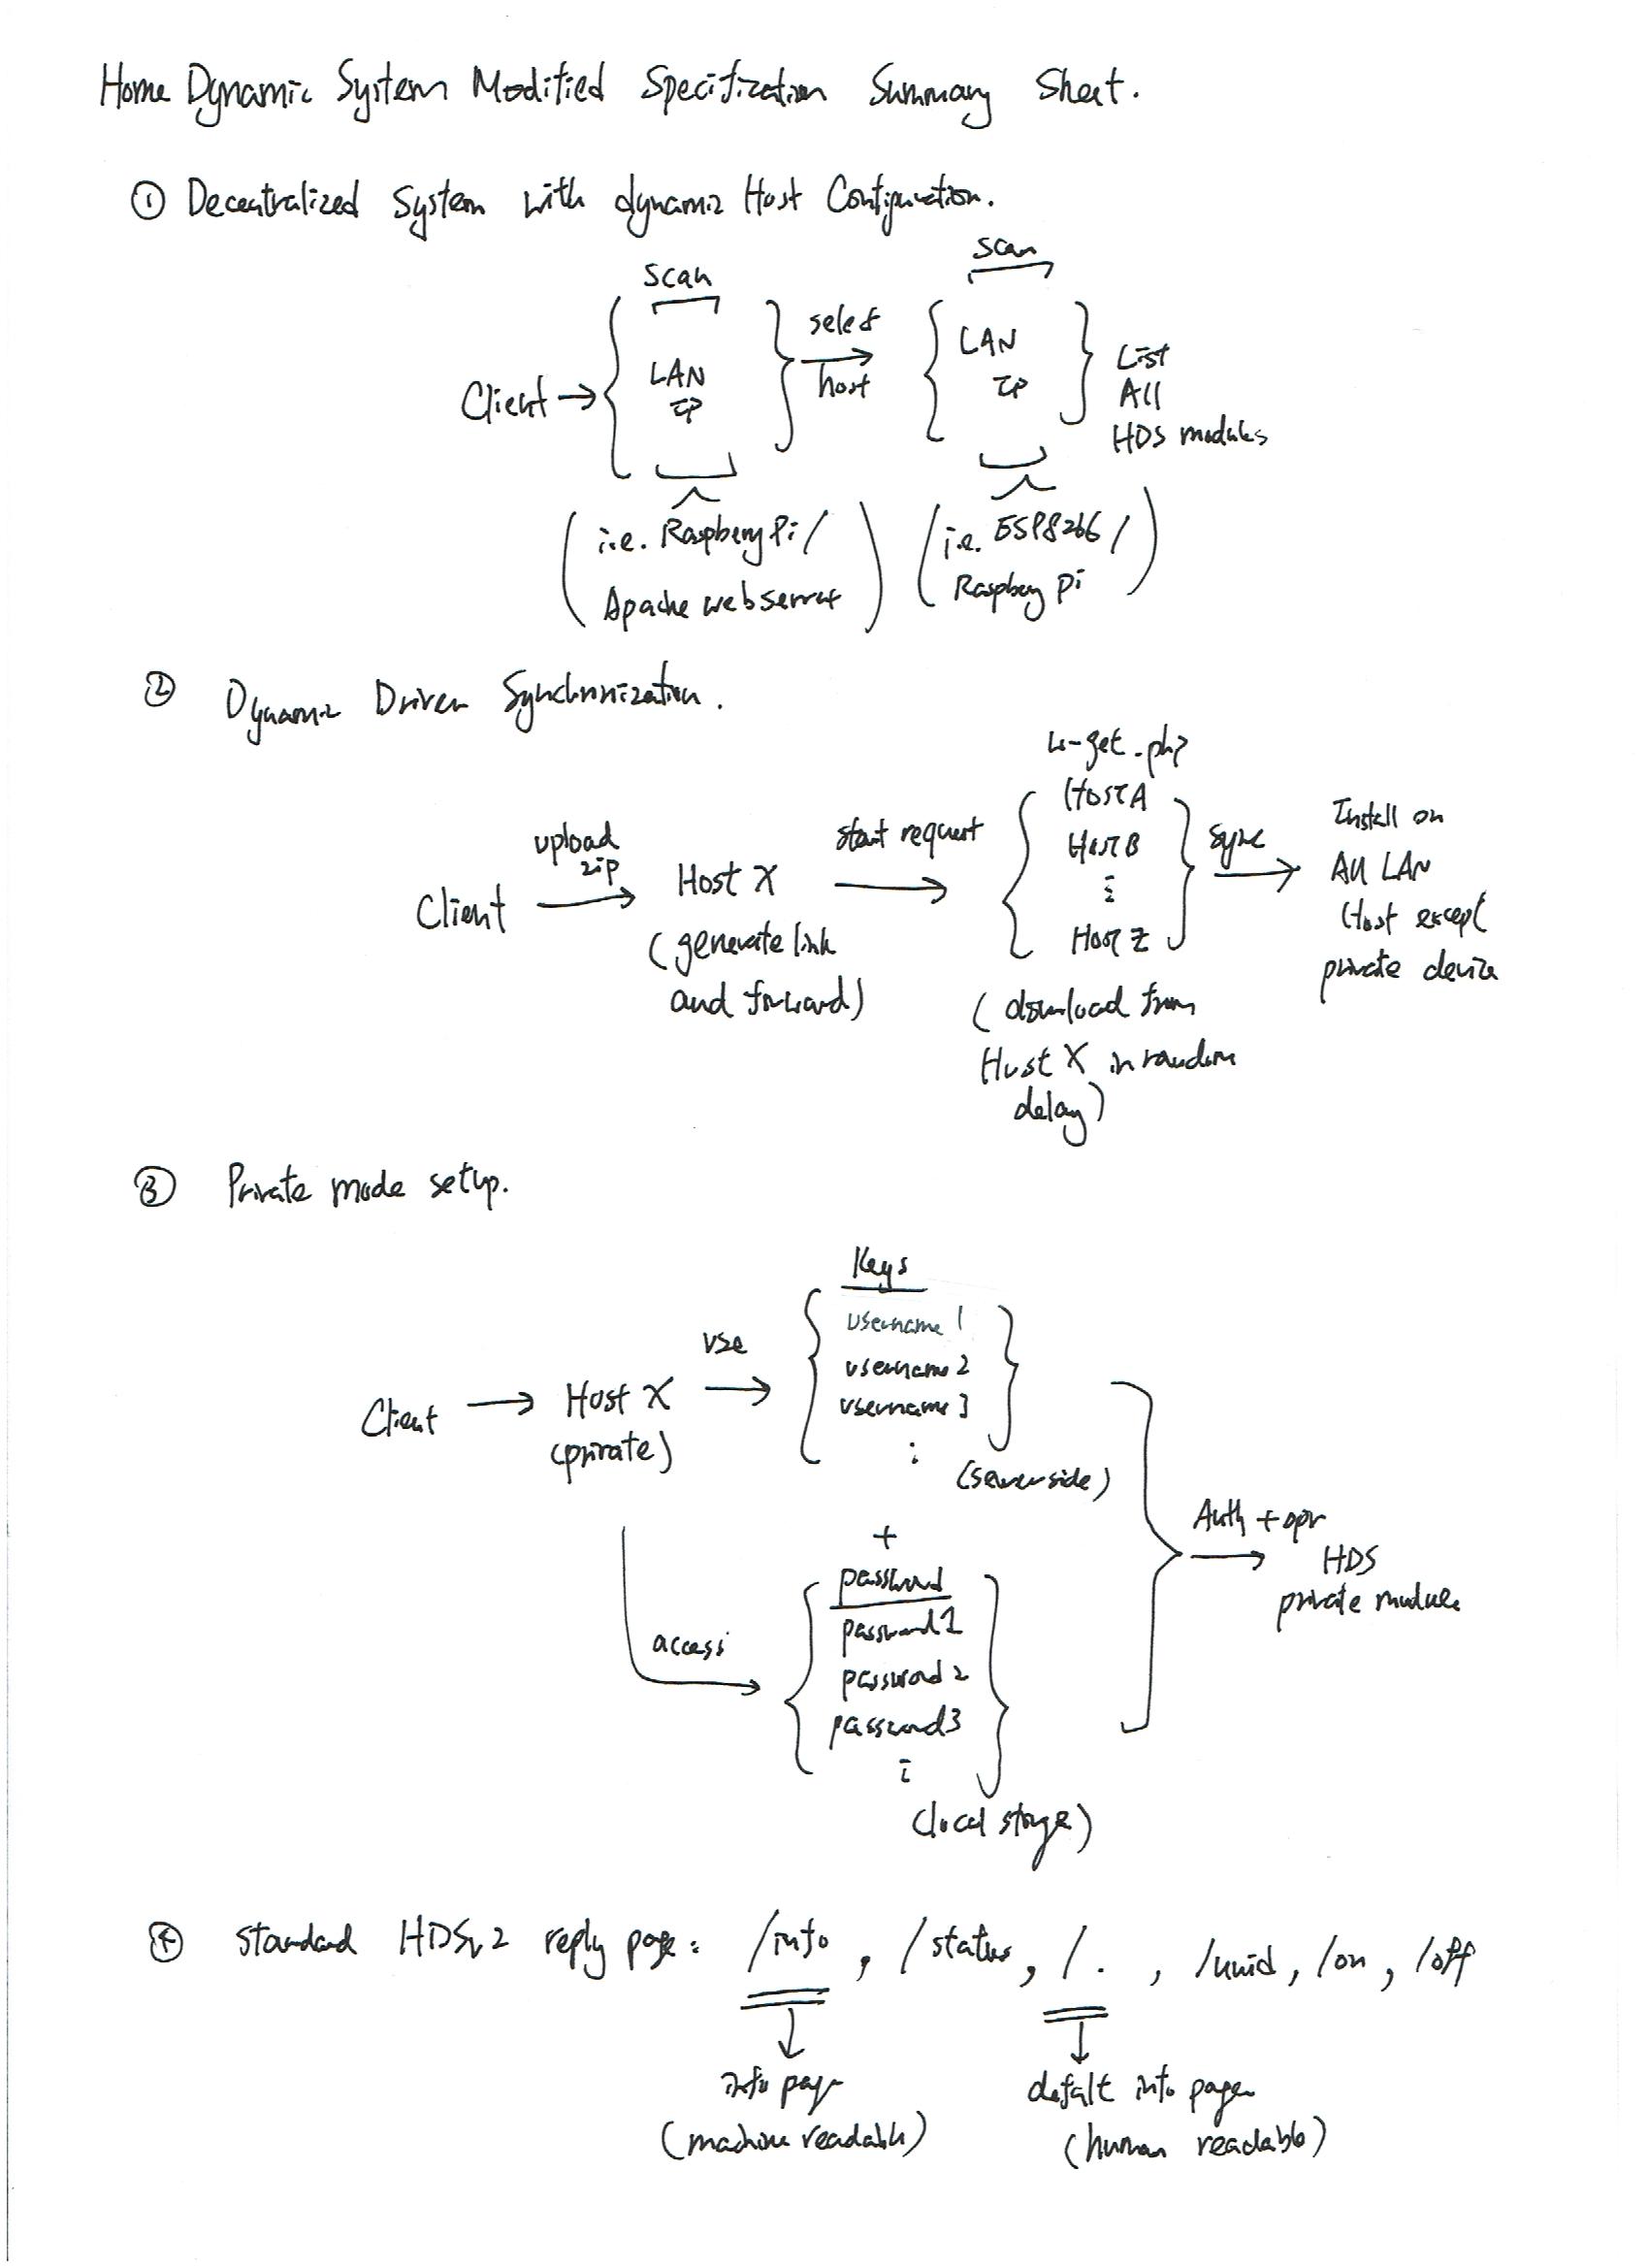 Home Dynamic System Modified Specification Summary Sheet.
① Decentralized System with dynamic Host Configuration.
scan
scan
Client → { LAN IP } select host → { LAN IP } List All HDS modules
(i.e. Raspberry Pi /
Apache web server)
(i.e. ESP8266 /
Raspberry Pi)
② Dynamic Driven Synchronization.
Client
upload
zip
Host X
(generate link
and forward)
start request
-get.php
Host A
Host B
⋮
Host Z
(download from
Host X in random
delay)
sync
Install on
All LAN
Host except
private device
③ Private mode setup.
Client
Host X
(private)
use
Keys
username 1
username 2
username 3
⋮
(server side)
+
access
password
password1
password2
password3
⋮
(local storage)
Auth + opr
HDS
private module
④ Standard HDSv2 reply page: /info, /status, /. , /uuid, /on, /off
info page
(machine readable)
defalt info page
(human readable)